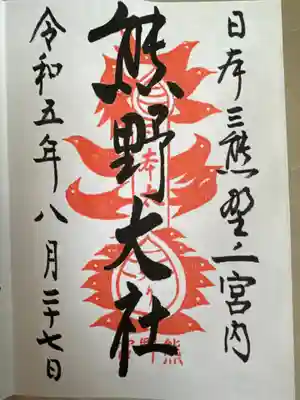 日本三熊野之一宮内
熊野大社
令和五年八月二十七日